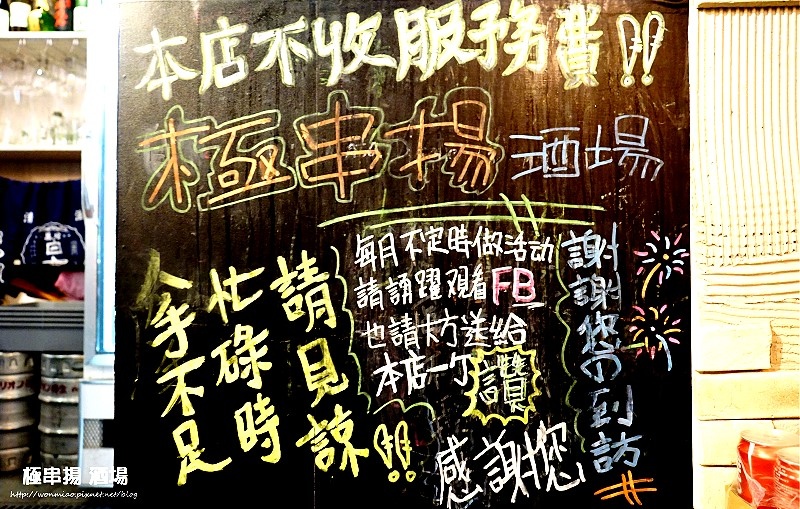 本店不收服務費!!
極串揚 酒場
每月不定時做活动
請踴躍观看FB
也請大方送給
本店一个讚
感謝您
謝謝您的到訪
請見諒!!
忙碌時
人手不足
極串揚 酒場
http://wonmiao.pixnet.net/blog